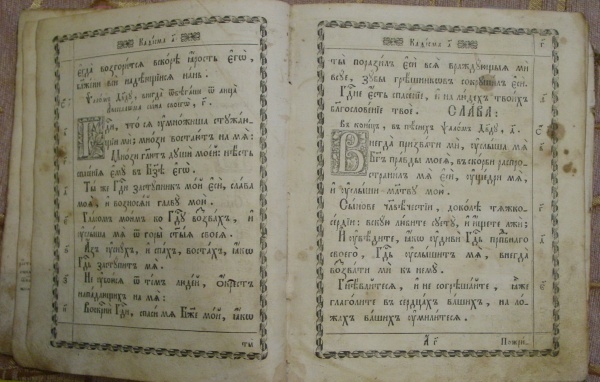 Каѳісма а҃
егда̀ возгори́тся вско́рѣ ꙗ҆́рость є҆гѡ̀,
бл҃же́ни всѝ надѣ́ющїисѧ на́нь.
Ѱало́мъ Дв҃ду, внегда̀ ѿбѣга́ше ѿ лица̀
А҆вессало́ма сы́на своегѡ̀, г҃.
Гд҇и, что́ сѧ ᲂу҆мно́жиша стужа́ю-
щїи мѝ; мно́зи востаю́тъ на мѧ̀:
Мно́зи гл҃ютъ дꙋшѝ мое́й: нѣ́сть
спасе́нїѧ є҆мꙋ̀ въ Бз҃ѣ є҆гѡ̀.
Ты́ же Гд҇и застꙋ́пникъ мо́й є҆сѝ, сла́ва
моѧ̀, и҆ возносѧ́й главꙋ̀ мою̀.
Гла́сомъ мои́мъ ко Гд҇ꙋ воззва́хъ, и҆
ᲂу҆слы́ша мѧ̀ ѿ горы̀ ст҃ы́ѧ своеѧ̀.
А҆́зъ ᲂу҆снꙋ́хъ, и҆ спа́хъ, воста́хъ, ꙗ҆́кѡ
Гд҇ь застꙋ́питъ мѧ̀.
Не ᲂу҆бою́сѧ ѿ те́мъ люде́й, ѻ҆́крестъ
напа́дающихъ на мѧ̀:
Воскр҇нѝ Гд҇и, спасѝ мѧ Бж҃е мо́й, ꙗ҆́кѡ
ты
Каѳісма а҃
ты̀ поразѝлъ є҆сѝ всѧ̀ враждꙋ́ющыѧ мѝ
всꙋ́е, зꙋ́бы грѣ́шникѡвъ сокрꙋши́лъ є҆сѝ.
Гд҇не є҆́сть спасе́нїе, и҆ на лю́дехъ твои́хъ
бл҃гослове́нїе твоѐ. СЛАВА:
Въ коне́цъ, въ пѣ́снехъ ѱало́мъ Дв҃дꙋ, д҃.
Внегда̀ призва́ти мѝ, ᲂу҆слы́ша мѧ̀
Бг҃ъ пра́вды моеѧ̀, въ ско́рби распро-
страни́лъ мѧ̀ є҆сѝ, ᲂу҆ще́дри мѧ̀,
и҆ ᲂу҆слы́ши мл҃твꙋ мою̀.
Сы́нове чл҃вѣ́честїи, доко́лѣ тѧжко-
се́рдїи; вскꙋ́ю лю́бите сꙋетꙋ̀, и҆ и҆́щете лжѝ:
И҆ ᲂу҆вѣ́дите, ꙗ҆́кѡ ᲂу҆дивѝ Гд҇ь прпⷣбнаго
своего̀, Гд҇ь ᲂу҆слы́шитъ мѧ̀, внегда̀
возва́ти мѝ къ немꙋ̀.
Гнѣ́вайтесѧ, и҆ не согрѣша́йте, ꙗ҆̀же
глаго́лете въ сердца́хъ ва́шихъ, на ло́-
жахъ ва́шихъ ᲂу҆мили́тесѧ.
Пожри